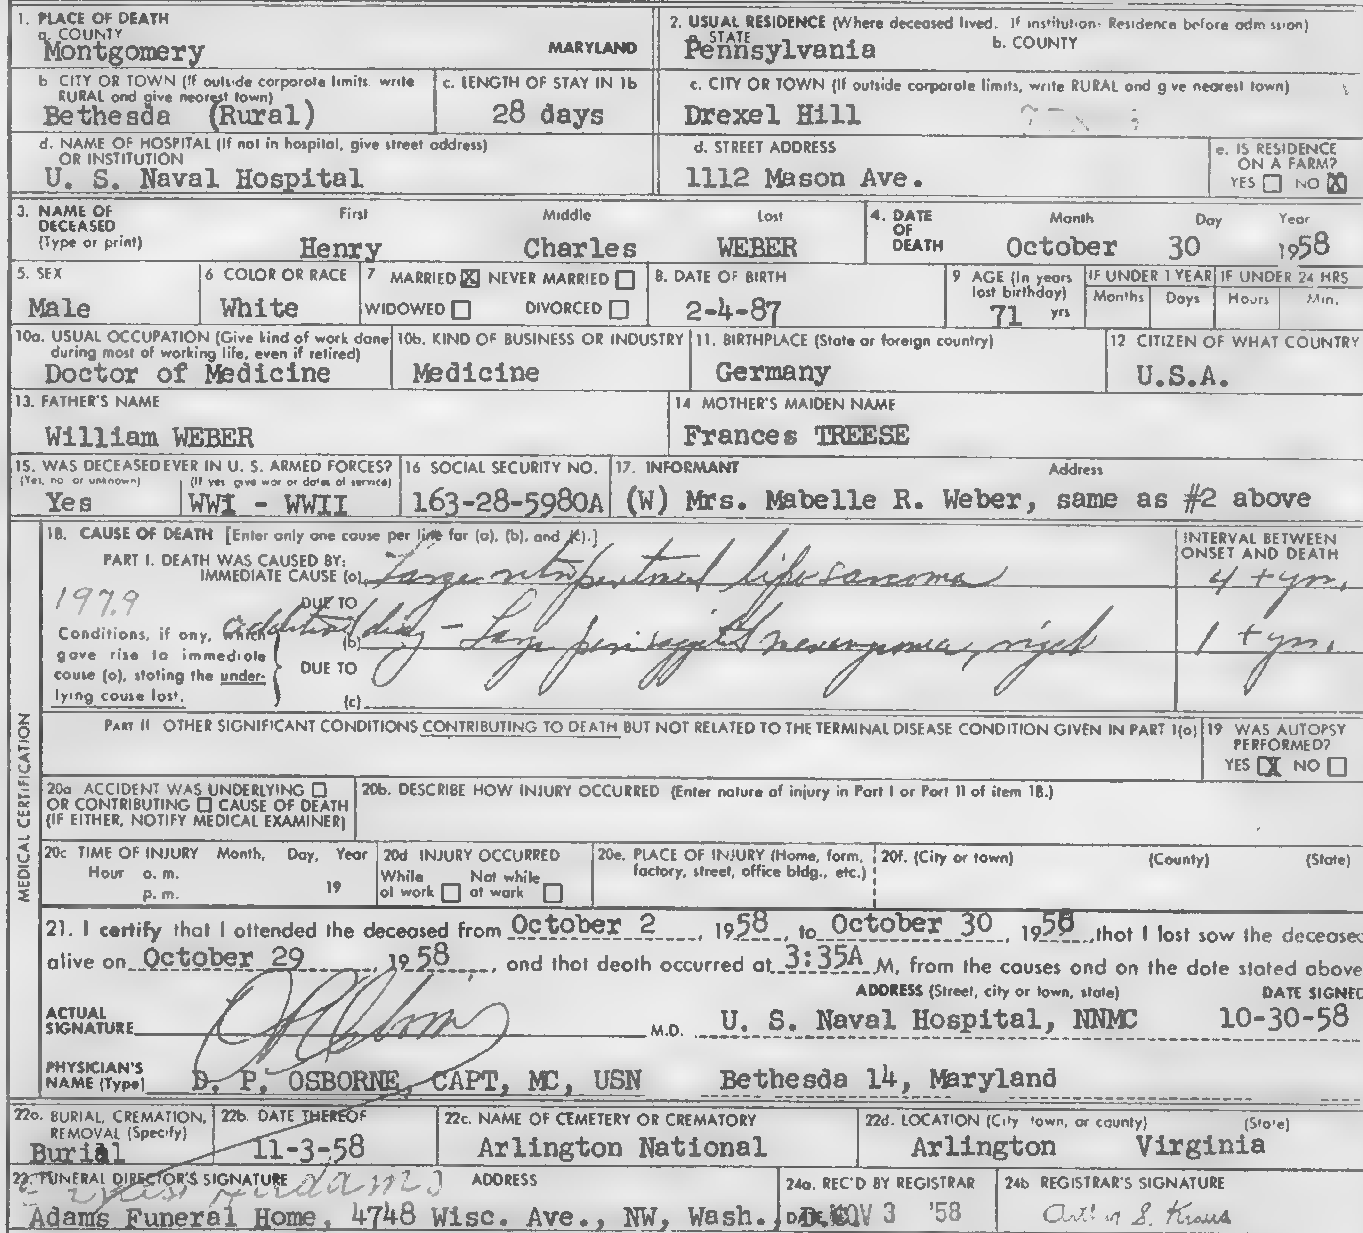 1. PLACE OF DEATH
a. COUNTY
Montgomery MARYLAND
2. USUAL RESIDENCE (Where deceased lived. If institution: Residence before admission)
a. STATE b. COUNTY
Pennsylvania
b CITY OR TOWN (If outside corporate limits, write RURAL and give nearest town)
Bethesda (Rural)
c. LENGTH OF STAY IN 1b
28 days
c. CITY OR TOWN (If outside corporate limits, write RURAL and give nearest town)
Drexel Hill
d. NAME OF HOSPITAL (If not in hospital, give street address)
OR INSTITUTION
U. S. Naval Hospital
d. STREET ADDRESS
1112 Mason Ave.
e. IS RESIDENCE
ON A FARM?
YES NO X
3. NAME OF
DECEASED
(Type or print)
First Middle Last
Henry Charles WEBER
4. DATE
OF
DEATH
Month Day Year
October 30 1958
5. SEX
Male
6 COLOR OR RACE
White
7 MARRIED X NEVER MARRIED
WIDOWED DIVORCED
8. DATE OF BIRTH
2-4-87
9 AGE (In years
last birthday)
71 yrs
IF UNDER 1 YEAR IF UNDER 24 HRS
Months Days Hours Min.
10a. USUAL OCCUPATION (Give kind of work done
during most of working life, even if retired)
Doctor of Medicine
10b. KIND OF BUSINESS OR INDUSTRY
Medicine
11. BIRTHPLACE (State or foreign country)
Germany
12 CITIZEN OF WHAT COUNTRY
U.S.A.
13. FATHER'S NAME
William WEBER
14 MOTHER'S MAIDEN NAME
Frances TREESE
15. WAS DECEASED EVER IN U. S. ARMED FORCES?
(Yes, no or unknown) (If yes give war or dates of service)
Yes WWI - WWII
16 SOCIAL SECURITY NO.
163-28-5980A
17. INFORMANT Address
(W) Mrs. Mabelle R. Weber, same as #2 above
MEDICAL CERTIFICATION
18. CAUSE OF DEATH [Enter only one cause per line for (a), (b), and (c).]
PART I. DEATH WAS CAUSED BY:
IMMEDIATE CAUSE (a) Large liposarcoma
INTERVAL BETWEEN
ONSET AND DEATH
4 + yrs.
197.9
DUE TO
Conditions, if any, which
gave rise to immediate
cause (a), stating the under-
lying cause last.
additional diag - Large meningioma, right
(b)
1 + yrs.
DUE TO
(c)
PART II OTHER SIGNIFICANT CONDITIONS CONTRIBUTING TO DEATH BUT NOT RELATED TO THE TERMINAL DISEASE CONDITION GIVEN IN PART I(a)
19 WAS AUTOPSY
PERFORMED?
YES X NO
20a ACCIDENT WAS UNDERLYING
OR CONTRIBUTING CAUSE OF DEATH
(IF EITHER, NOTIFY MEDICAL EXAMINER)
20b. DESCRIBE HOW INJURY OCCURRED (Enter nature of injury in Part I or Part II of item 18.)
20c TIME OF INJURY Month, Day, Year
Hour a. m.
p. m. 19
20d INJURY OCCURRED
While Not while
at work at work
20e. PLACE OF INJURY (Home, farm,
factory, street, office bldg., etc.)
20f. (City or town) (County) (State)
21. I certify that I attended the deceased from October 2, 1958, to October 30, 1958, that I last saw the deceased
alive on October 29, 1958, and that death occurred at 3:35A M, from the causes and on the date stated above
ADDRESS (Street, city or town, state) DATE SIGNED
ACTUAL
SIGNATURE D P Osborne M.D. U. S. Naval Hospital, NNMC 10-30-58
PHYSICIAN'S
NAME (Type) D. P. OSBORNE, CAPT, MC, USN Bethesda 14, Maryland
22a. BURIAL, CREMATION,
REMOVAL (Specify)
Burial
22b. DATE THEREOF
11-3-58
22c. NAME OF CEMETERY OR CREMATORY
Arlington National
22d. LOCATION (City town, or county) (State)
Arlington Virginia
23. FUNERAL DIRECTOR'S SIGNATURE ADDRESS
Adams
Adams Funeral Home, 4748 Wisc. Ave., NW, Wash., D.C.
24a. REC'D BY REGISTRAR
DATE NOV 3 '58
24b REGISTRAR'S SIGNATURE
Arthur S. Kraus